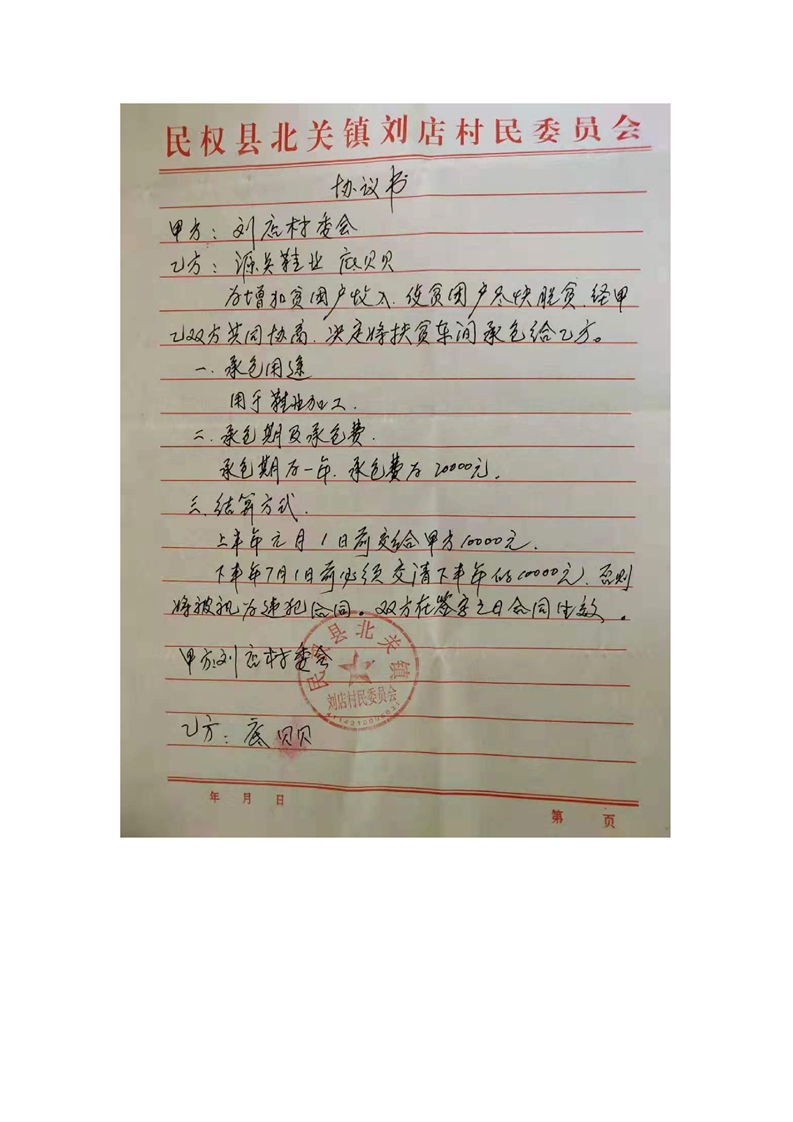 民权县北关镇刘店村民委员会
协议书
甲方：刘店村委会
乙方：源昊鞋业 底贝贝
为增加贫困户收入、使贫困户尽快脱贫、经甲
乙双方共同协商、决定将扶贫车间承包给乙方。
一、承包用途
用于鞋业加工.
二、承包期及承包费.
承包期为一年、承包费为20000元.
三、结算方式.
上半年元月1日前交给甲方10000元.
下半年7月1日前必须交清下半年的10000元、否则
将被视为违犯合同。双方在签字之日合同生效.
甲方:刘店村委会
民权县北关镇
刘店村民委员会
乙方：底贝贝
年 月 日
第 页